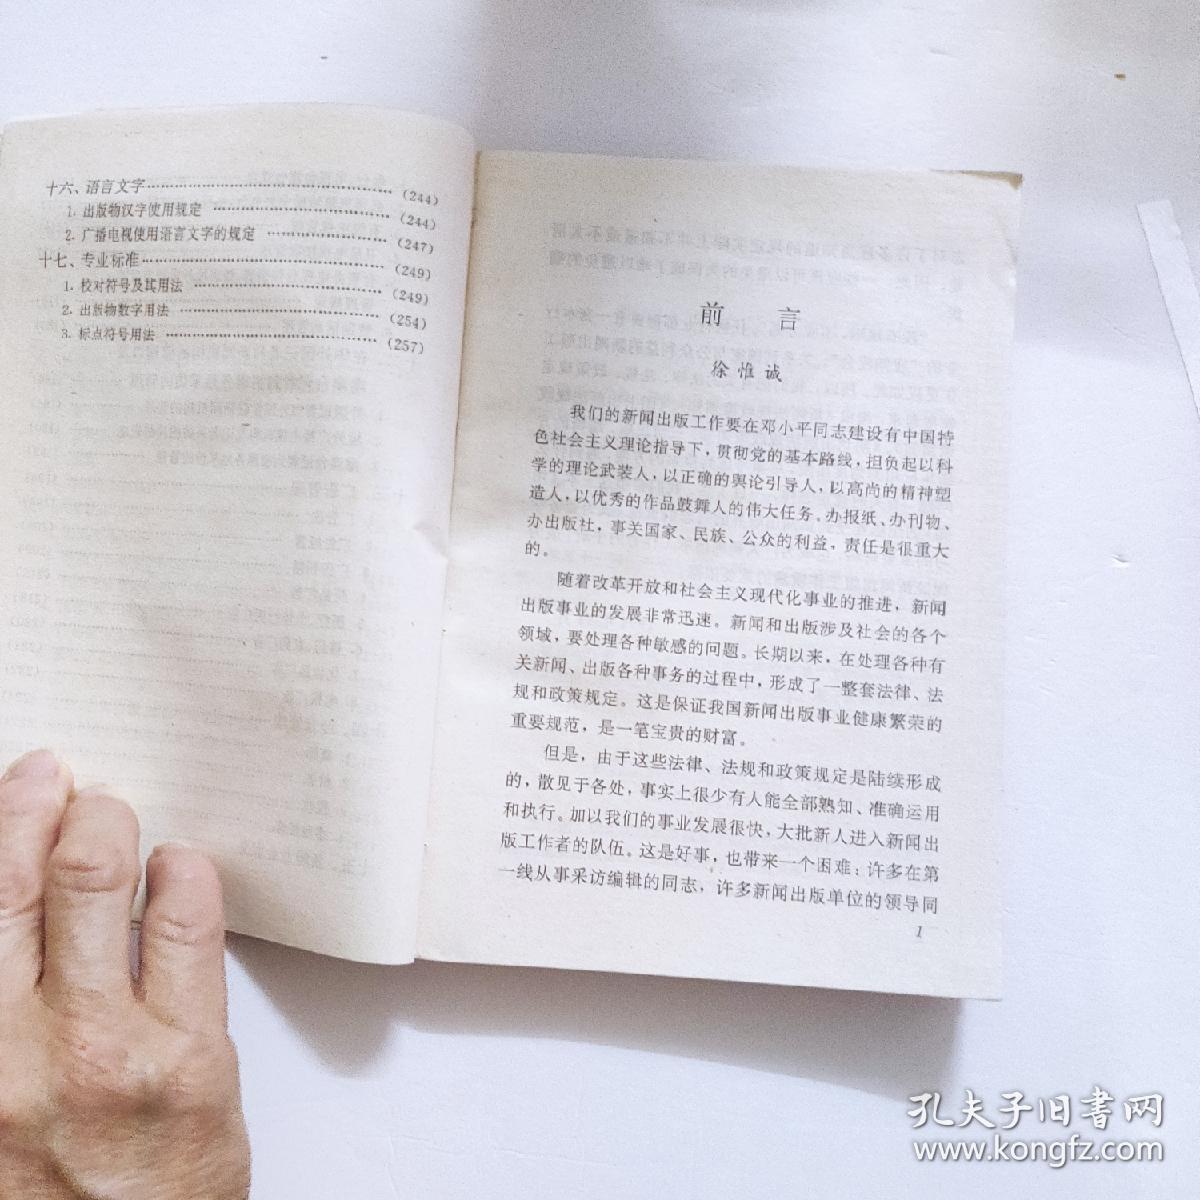 十六、语言文字……………………………………(244)
1. 出版物汉字使用规定 ……………………………(244)
2. 广播电视使用语言文字的规定 …………………(247)
十七、专业标准……………………………………(249)
1. 校对符号及其用法 ………………………………(249)
2. 出版物数字用法 …………………………………(254)
3. 标点符号用法 ……………………………………(257)
前 言
徐惟诚
我们的新闻出版工作要在邓小平同志建设有中国特
色社会主义理论指导下，贯彻党的基本路线，担负起以科
学的理论武装人，以正确的舆论引导人，以高尚的精神塑
造人，以优秀的作品鼓舞人的伟大任务。办报纸、办刊物、
办出版社，事关国家、民族、公众的利益，责任是很重大
的。
随着改革开放和社会主义现代化事业的推进，新闻
出版事业的发展非常迅速。新闻和出版涉及社会的各个
领域，要处理各种敏感的问题。长期以来，在处理各种有
关新闻、出版各种事务的过程中，形成了一整套法律、法
规和政策规定。这是保证我国新闻出版事业健康繁荣的
重要规范，是一笔宝贵的财富。
但是，由于这些法律、法规和政策规定是陆续形成
的，散见于各处，事实上很少有人能全部熟知、准确运用
和执行。加以我们的事业发展很快，大批新人进入新闻出
版工作者的队伍。这是好事，也带来一个困难：许多在第
一线从事采访编辑的同志，许多新闻出版单位的领导同
1
孔夫子旧书网
www.kongfz.com